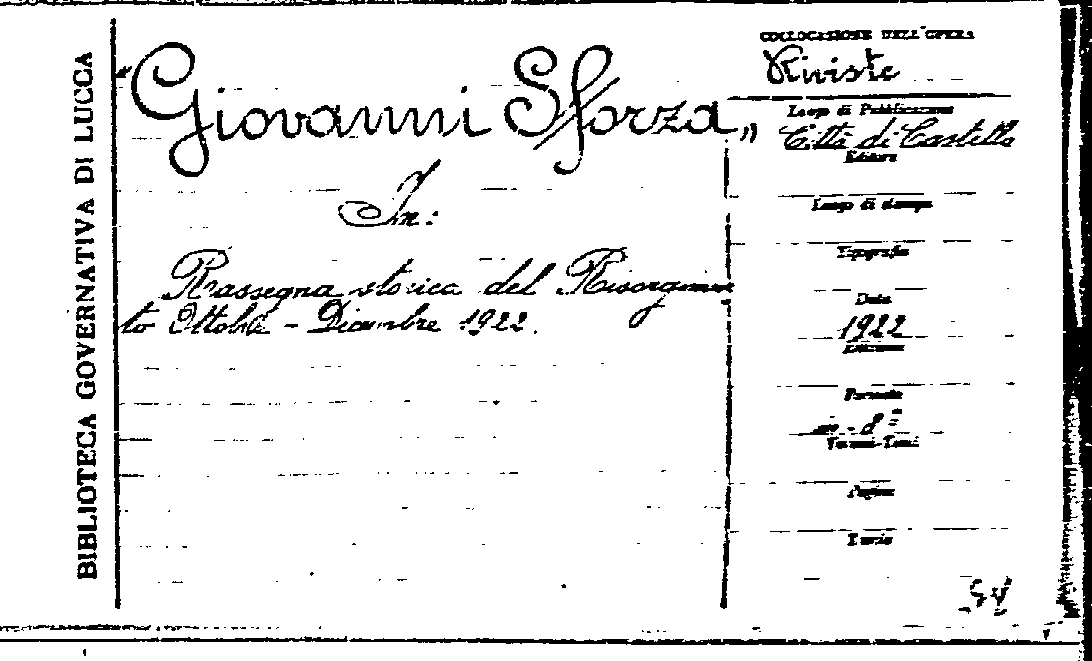 BIBLIOTECA GOVERNATIVA DI LUCCA
"Giovanni Sforza„
In:
Rassegna storica del Risorgimen
to Ottobre - Dicembre 1922.
COLLOCAZIONE DELL'OPERA
Riviste
Luogo di Pubblicazione
Città di Castello
Editore
Luogo di stampa
Tipografia
Data
1922
Edizione
Formato
in-8º
Volumi-Tomi
Pagine
54